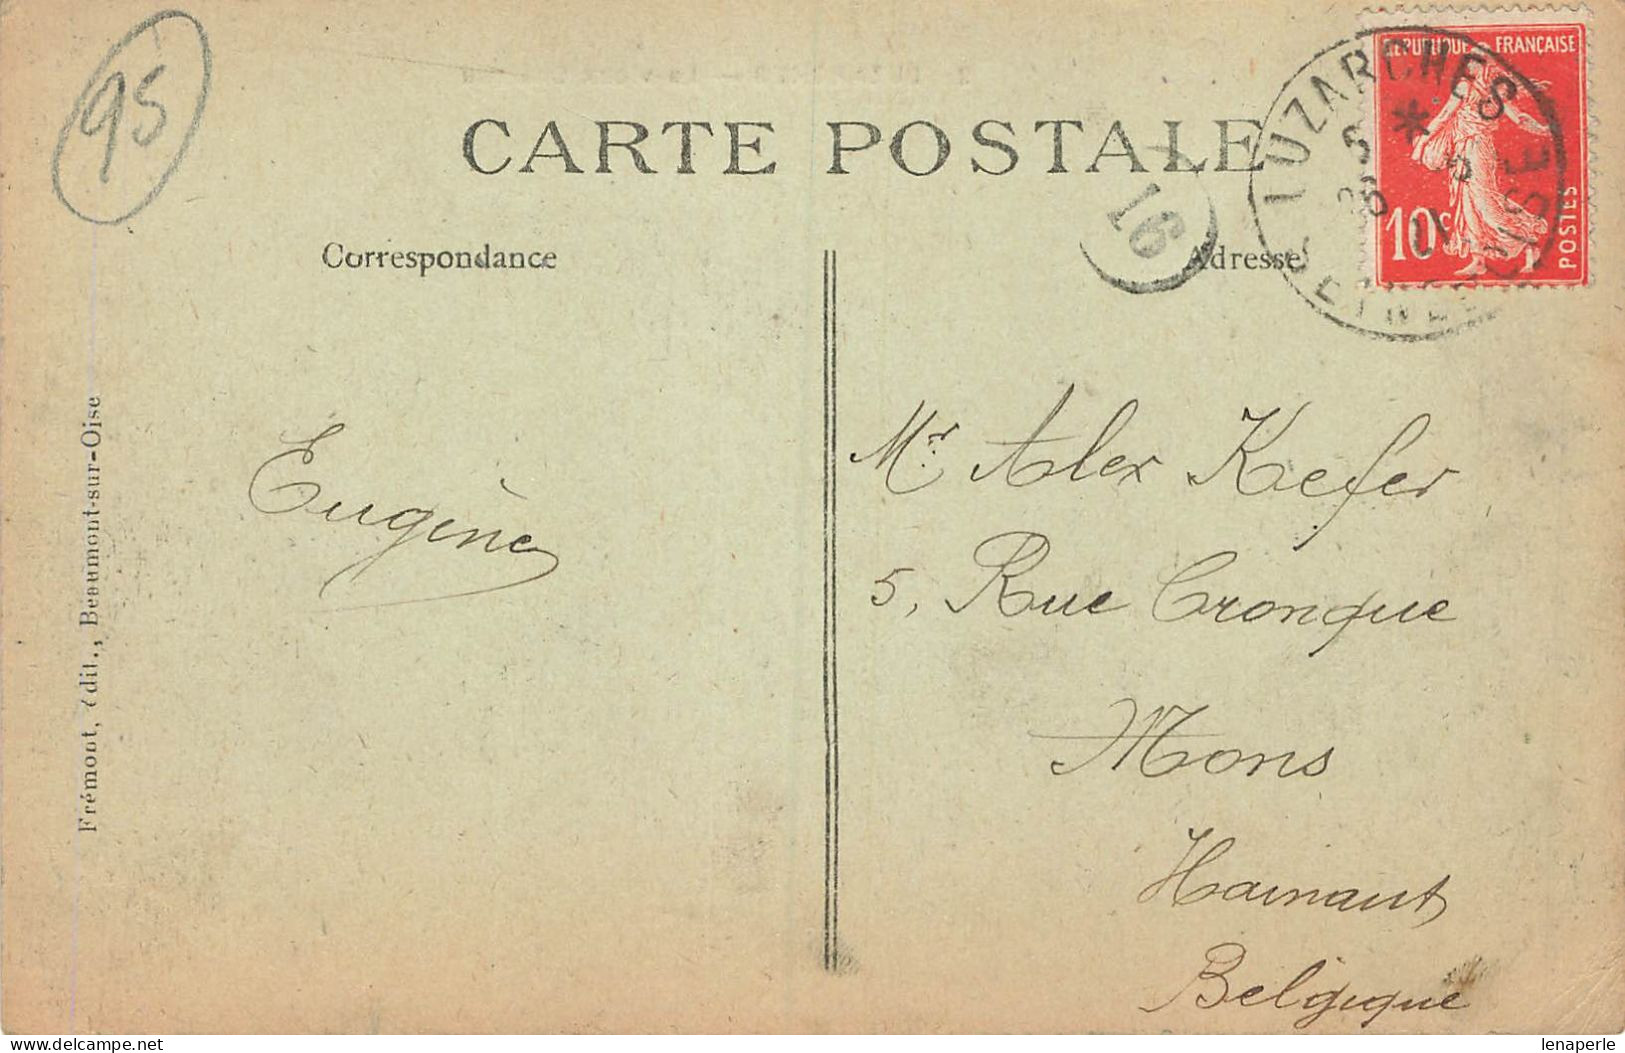 95
CARTE POSTALE
RÉPUBLIQUE FRANÇAISE
10c
POSTES
LUZARCHES
SEINE-ET-OISE
16
Correspondance
Adresse
Frémont, édit., Beaumont-sur-Oise
Eugène
Mr Alex Kefer
5, Rue Cronque
Mons
Hainaut
Belgique
delcampe.net
lenaperle